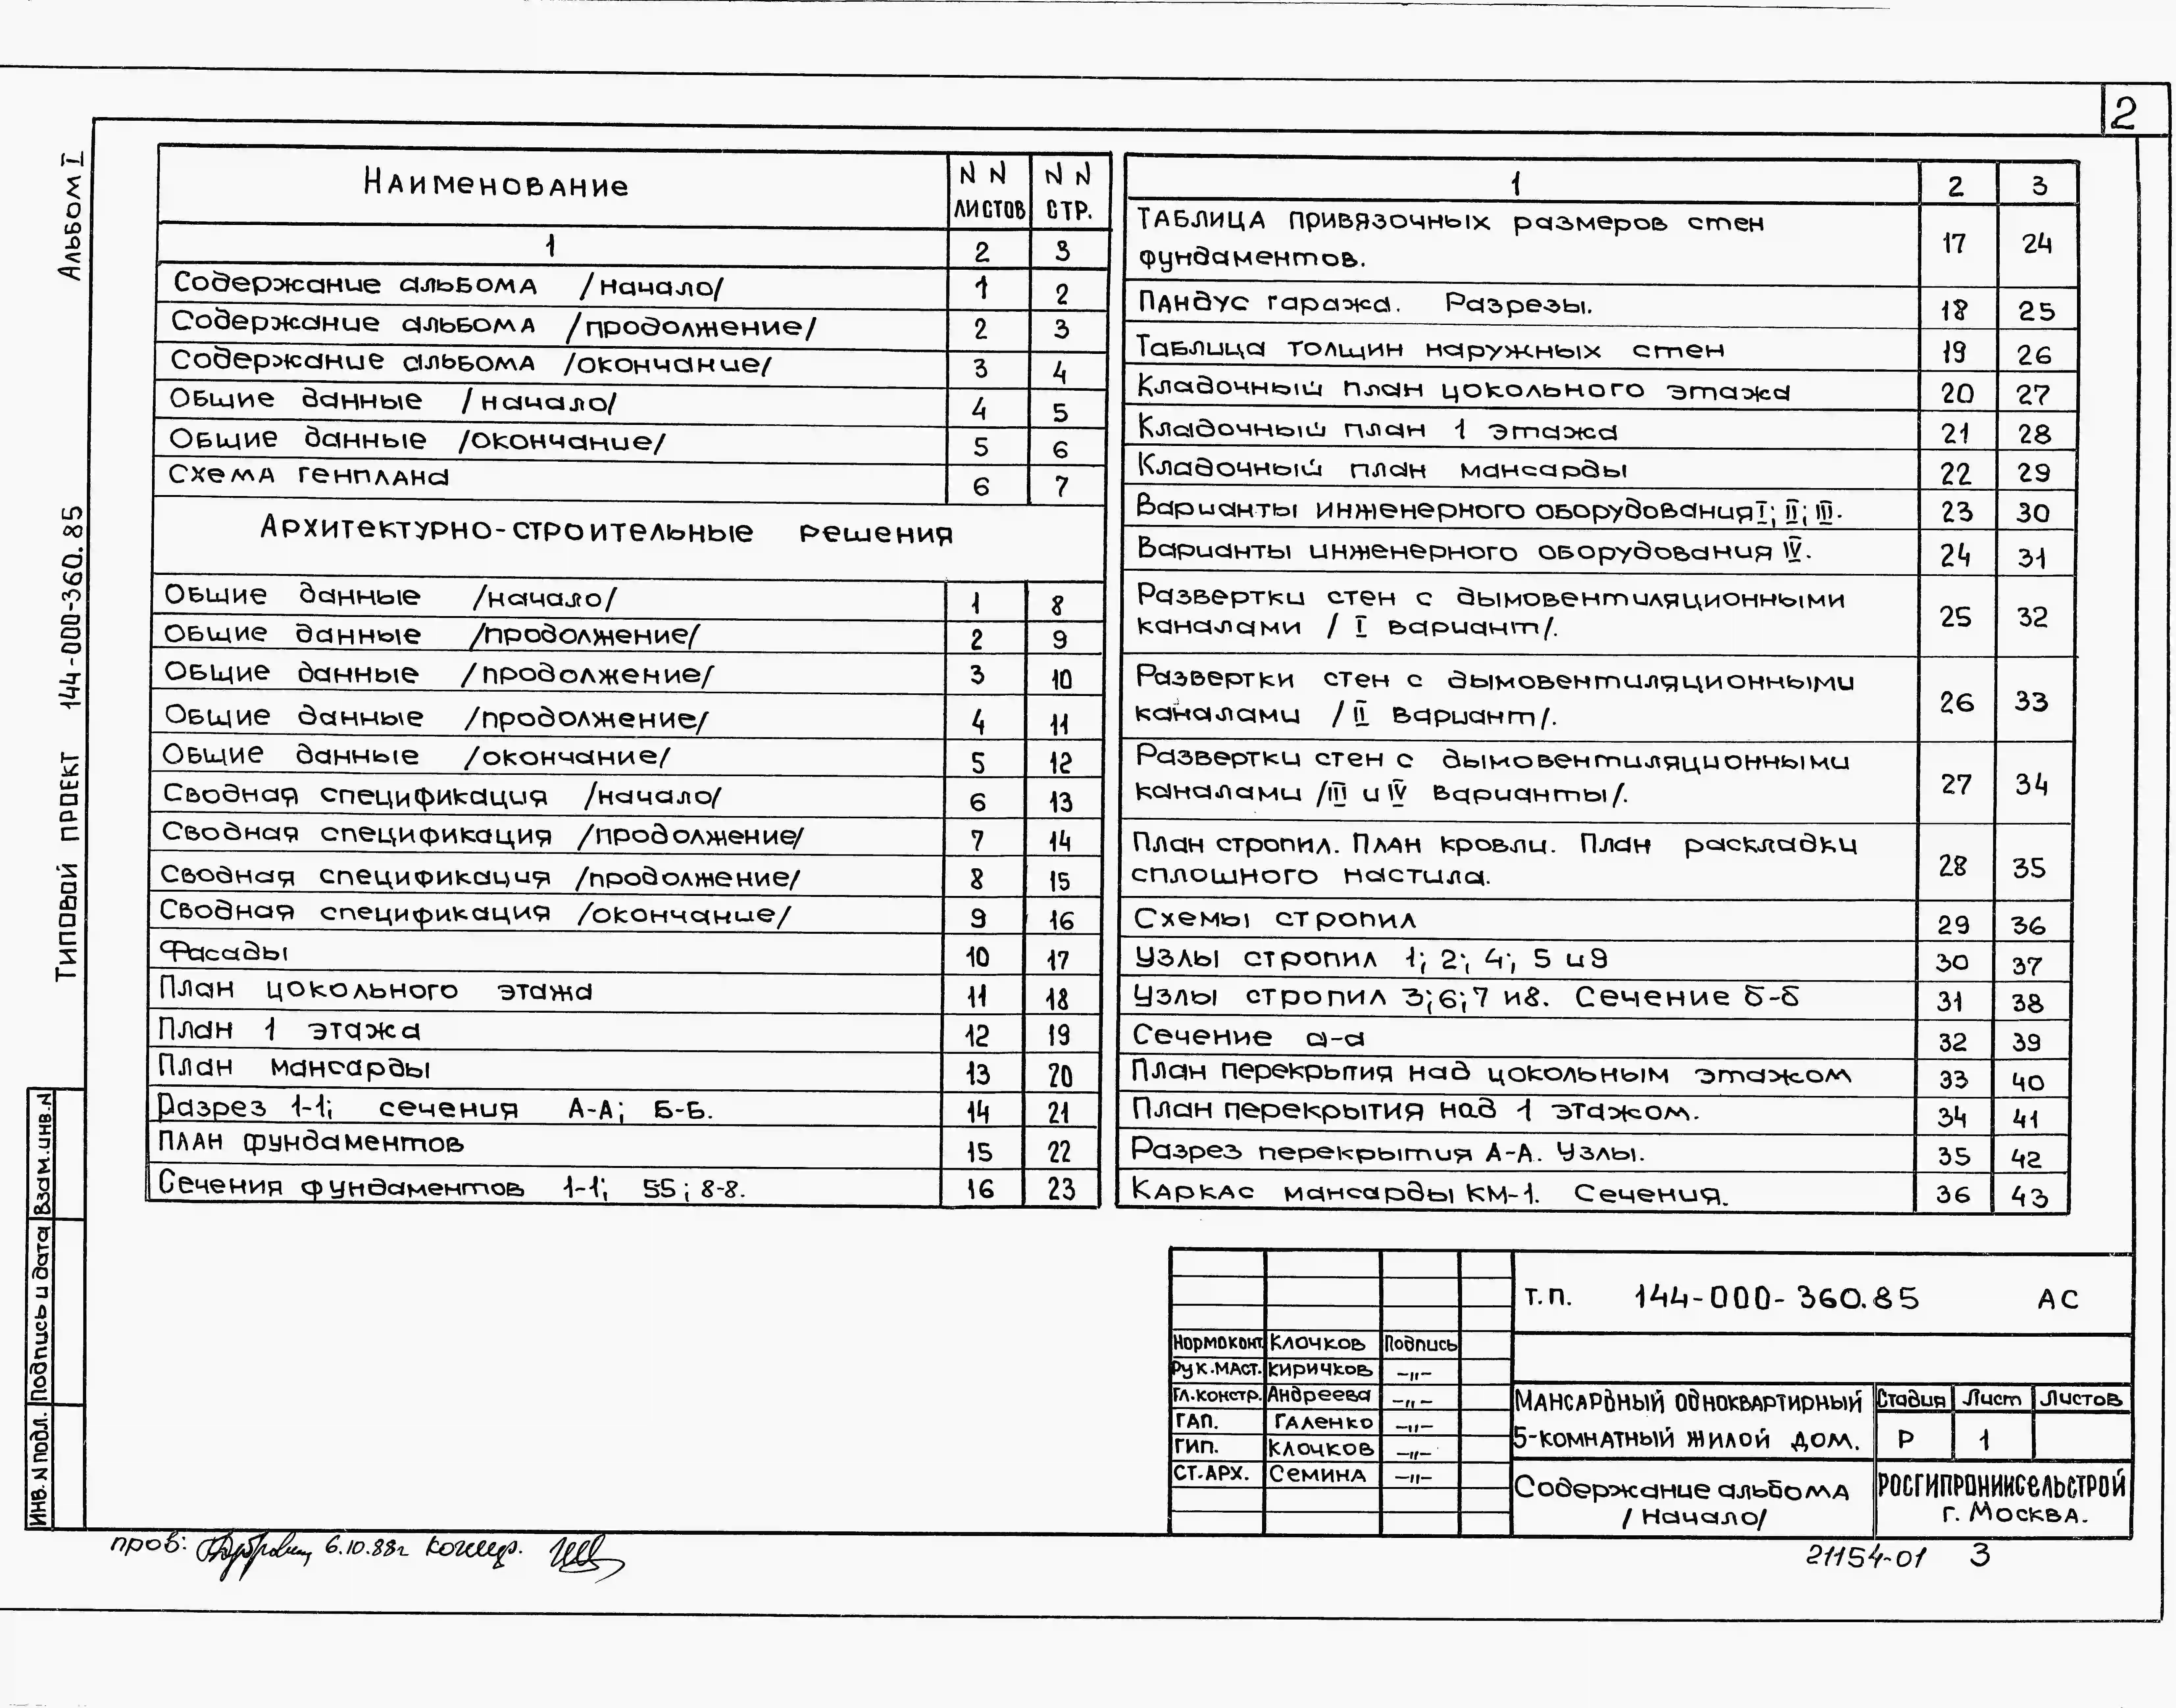 2
Альбом I
Типовой проект 144-000-360.85
Наименование
NN листов
NN стр.
1 2 3
Содержание альбома /начало/ 1 2
Содержание альбома /продолжение/ 2 3
Содержание альбома /окончание/ 3 4
Общие данные /начало/ 4 5
Общие данные /окончание/ 5 6
Схема генплана 6 7
Архитектурно-строительные решения
Общие данные /начало/ 1 8
Общие данные /продолжение/ 2 9
Общие данные /продолжение/ 3 10
Общие данные /продолжение/ 4 11
Общие данные /окончание/ 5 12
Сводная спецификация /начало/ 6 13
Сводная спецификация /продолжение/ 7 14
Сводная спецификация /продолжение/ 8 15
Сводная спецификация /окончание/ 9 16
Фасады 10 17
План цокольного этажа 11 18
План 1 этажа 12 19
План мансарды 13 20
Разрез 1-1; сечения А-А; Б-Б. 14 21
План фундаментов 15 22
Сечения фундаментов 1-1; 55; 8-8. 16 23
1 2 3
Таблица привязочных размеров стен
фундаментов. 17 24
Пандус гаража. Разрезы. 18 25
Таблица толщин наружных стен 19 26
Кладочный план цокольного этажа 20 27
Кладочный план 1 этажа 21 28
Кладочный план мансарды 22 29
Варианты инженерного оборудования I; II; III. 23 30
Варианты инженерного оборудования IV. 24 31
Развертки стен с дымовентиляционными
каналами / I вариант/. 25 32
Развертки стен с дымовентиляционными
каналами / II вариант/. 26 33
Развертки стен с дымовентиляционными
каналами /III и IV варианты/. 27 34
План стропил. План кровли. План раскладки
сплошного настила. 28 35
Схемы стропил 29 36
Узлы стропил 1; 2; 4; 5 и 9 30 37
Узлы стропил 3; 6; 7 и 8. Сечение б-б 31 38
Сечение а-а 32 39
План перекрытия над цокольным этажом 33 40
План перекрытия над 1 этажом. 34 41
Разрез перекрытия А-А. Узлы. 35 42
Каркас мансарды КМ-1. Сечения. 36 43
Взам.инв.N
Подпись и дата
Инв. N подл.
Нормоконт. Клочков Подпись
Рук.маст. Киричков -"-
Гл.констр. Андреева -"-
ГАП. Галенко -"-
ГИП. Клочков -"-
Ст.арх. Семина -"-
Т.П. 144-000-360.85 АС
Мансардный одноквартирный
5-комнатный жилой дом.
Стадия Лист Листов
Р 1
Содержание альбома
/Начало/
Росгипрониисельстрой
г. Москва.
пров: 6.10.88г
21154-01 3